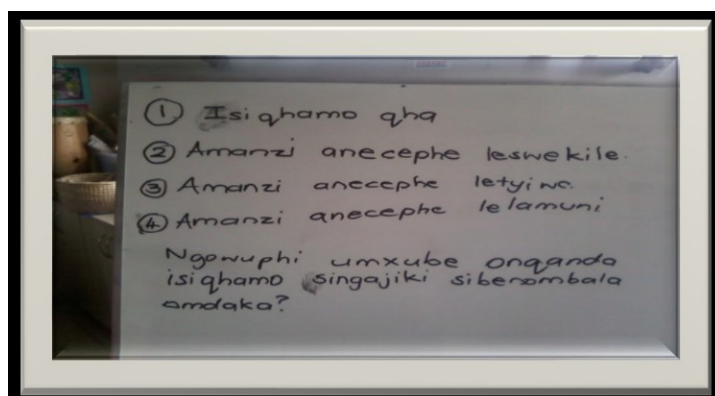 ① Isiqhamo qha
② Amanzi anecephe leswekile.
③ Amanzi anecephe letyiwe.
④ Amanzi anecephe lelamuni
Ngowuphi umxube onqanda
isiqhamo singajiki sibenombala
omdaka?